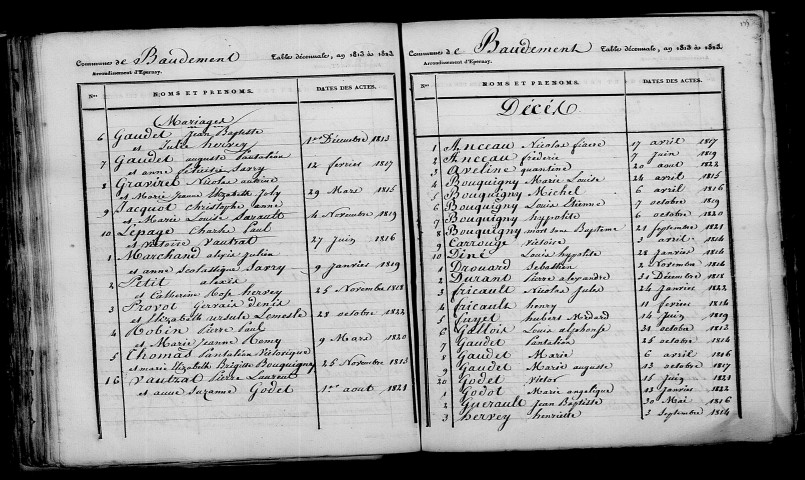 Communes de Baudement Table décennale, an 1813 à 1823.
Arrondissement d'Epernay.
Nos NOMS ET PRENOMS. DATES DES ACTES.
Mariages
6 Gaudet Jean Baptiste
et Julie hervey 1er Décembre 1813
7 Gaudet auguste pantaléon
et anne félicité Sarry 12 fevrier 1817
8 Graviret Nicolas
et Marie Jeanne Elizabeth Joly 29 Mars 1815
9 Jacquot Christophe anne
et Marie Louise Sarault 4 Novembre 1819
10 Lepage Charles Paul
et victoire Vautrat 27 Juin 1816
1 Marchand alexis julien
et anne Scolastique Sarry 9 Janvier 1819
2 Petit alexis
et Catherine Rose hervey 25 Novembre 1818
3 Provot Gervais Denis
et Elizabeth ursule Lemesle 28 octobre 1822
4 Robin Pierre Paul
et Marie Jeanne Remy 9 Mars 1820
5 Thomas Pantaléon Victorique
et marie Elizabeth Brigitte Bouquigny 25 Novembre 1813
16 Vautrat Pierre Laurent
et anne Suzanne Godet 1er aout 1821
Communes de Baudement Table décennale, an 1813 à 1823.
Arrondissement d'Epernay.
Nos NOMS ET PRENOMS. DATES DES ACTES.
Décès
1 Anceau Nicolas fiacre 17 avril 1817
2 Anceau fréderic 7 Juin 1819
3 Aveline quantine 20 aout 1822
4 Bouquigny Marie Louise 24 avril 1815
5 Bouquigny Michel 6 avril 1816
6 Bouquigny Louis Etienne 7 octobre 1819
7 Bouquigny hypolite 6 octobre 1820
8 Bouquigny mort sans Bapteme 21 Septembre 1821
9 Carrouge victoire 3 avril 1814
10 Déné Louis hypolite 28 Janvier 1816
1 Drouard Sebastien 2 Novembre 1814
2 Durant Pierre alexandre 31 Décembre 1818
3 fricault Nicolas Jules 24 Janvier 1822
4 fricault henry 11 fevrier 1816
5 hubert Médard 14 Juin 1819
6 Gallois Louis alphonse 31 octobre 1813
7 Gaudet Pantaléon 25 octobre 1814
8 Gaudet Marie 6 avril 1816
9 Gaudet Marie auguste 13 octobre 1817
20 Godet victor 15 Juin 1821
1 Godot Marie angelique 13 Janvier 1822
2 Guerault Jean Baptiste 30 Mai 1816
3 hervey henriette 3 Septembre 1814